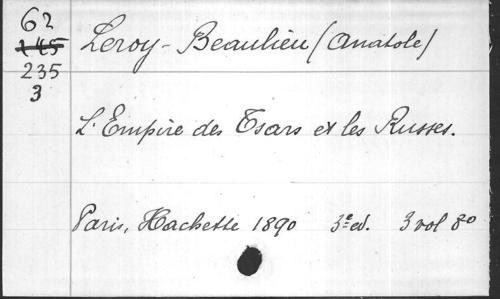 62
145
235
3
Leroy-Beaulieu (Anatole)
L'Empire des Tsars et les Russes.
Paris, Hachette 1890 3e ed. 3 vol 8o